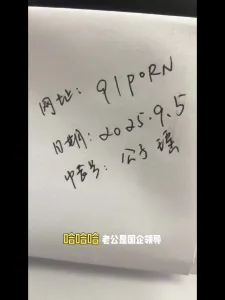 网址：91PORN
日期：2025.9.5
中营号：公子瑶
哈哈哈 老公是国企领导